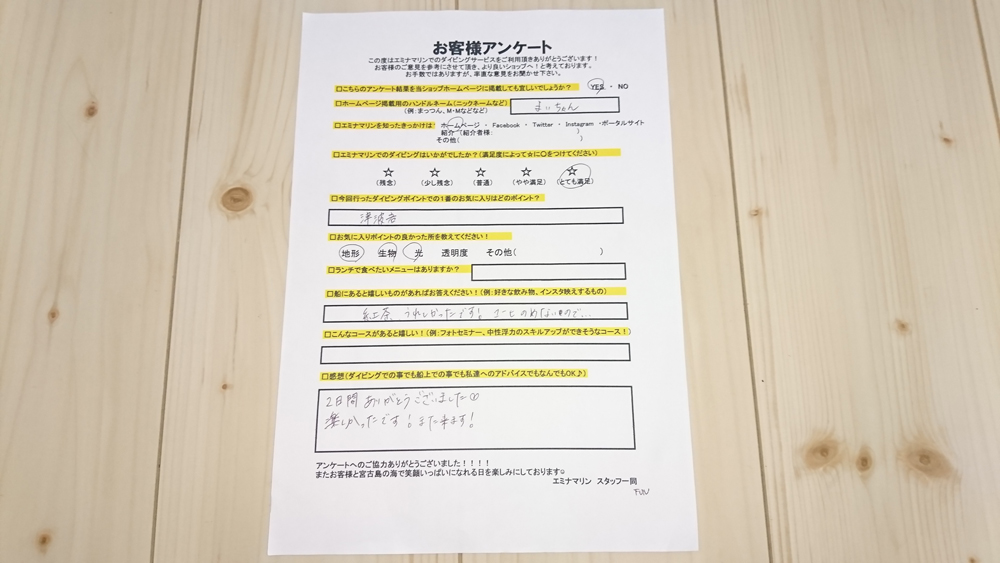 お客様アンケート
この度はエミナマリンでのダイビングサービスをご利用頂きありがとうございます！
お客様のご意見を参考にさせて頂き、より良いショップへ！と考えております。
お手数ではありますが、率直な意見をお聞かせ下さい。
□こちらのアンケート結果を当ショップホームページに掲載しても宜しいでしょうか？ YES ・ NO
□ホームページ掲載用のハンドルネーム(ニックネームなど) まいちゃん
(例：まっつん、M・Mなどなど)
□エミナマリンを知ったきっかけは ホームページ ・ Facebook ・ Twitter ・ Instagram ・ポータルサイト
紹介 (紹介者様： )
その他( )
□エミナマリンでのダイビングはいかがでしたか？(満足度によって☆に○をつけてください)
☆ ☆ ☆ ☆ ☆
(残念) (少し残念) (普通) (やや満足) (とても満足)
□今回行ったダイビングポイントでの1番のお気に入りはどのポイント？
津波岩
□お気に入りポイントの良かった所を教えてください！
地形 生物 光 透明度 その他( )
□ランチで食べたいメニューはありますか？
□船にあると嬉しいものがあればお答えください！(例：好きな飲み物、インスタ映えするもの)
紅茶、うれしかったです！コーヒーのめないので…
□こんなコースがあると嬉しい！(例：フォトセミナー、中性浮力のスキルアップができそうなコース！)
□感想(ダイビングでの事でも船上での事でも私達へのアドバイスでもなんでもOK♪)
2日間ありがとうございました
楽しかったです！また来ます！
アンケートへのご協力ありがとうございました！！！！
またお客様と宮古島の海で笑顔いっぱいになれる日を楽しみにしております。
エミナマリン スタッフ一同
FUN